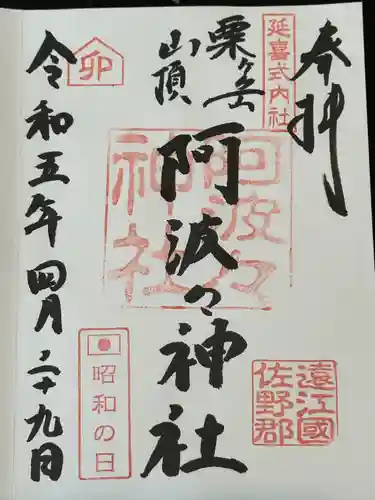 奉拝
延喜式内社
粟ヶ岳
山頂
阿波々神社
阿波々
神社
遠江國
佐野郡
卯
令和五年四月二十九日
昭和の日